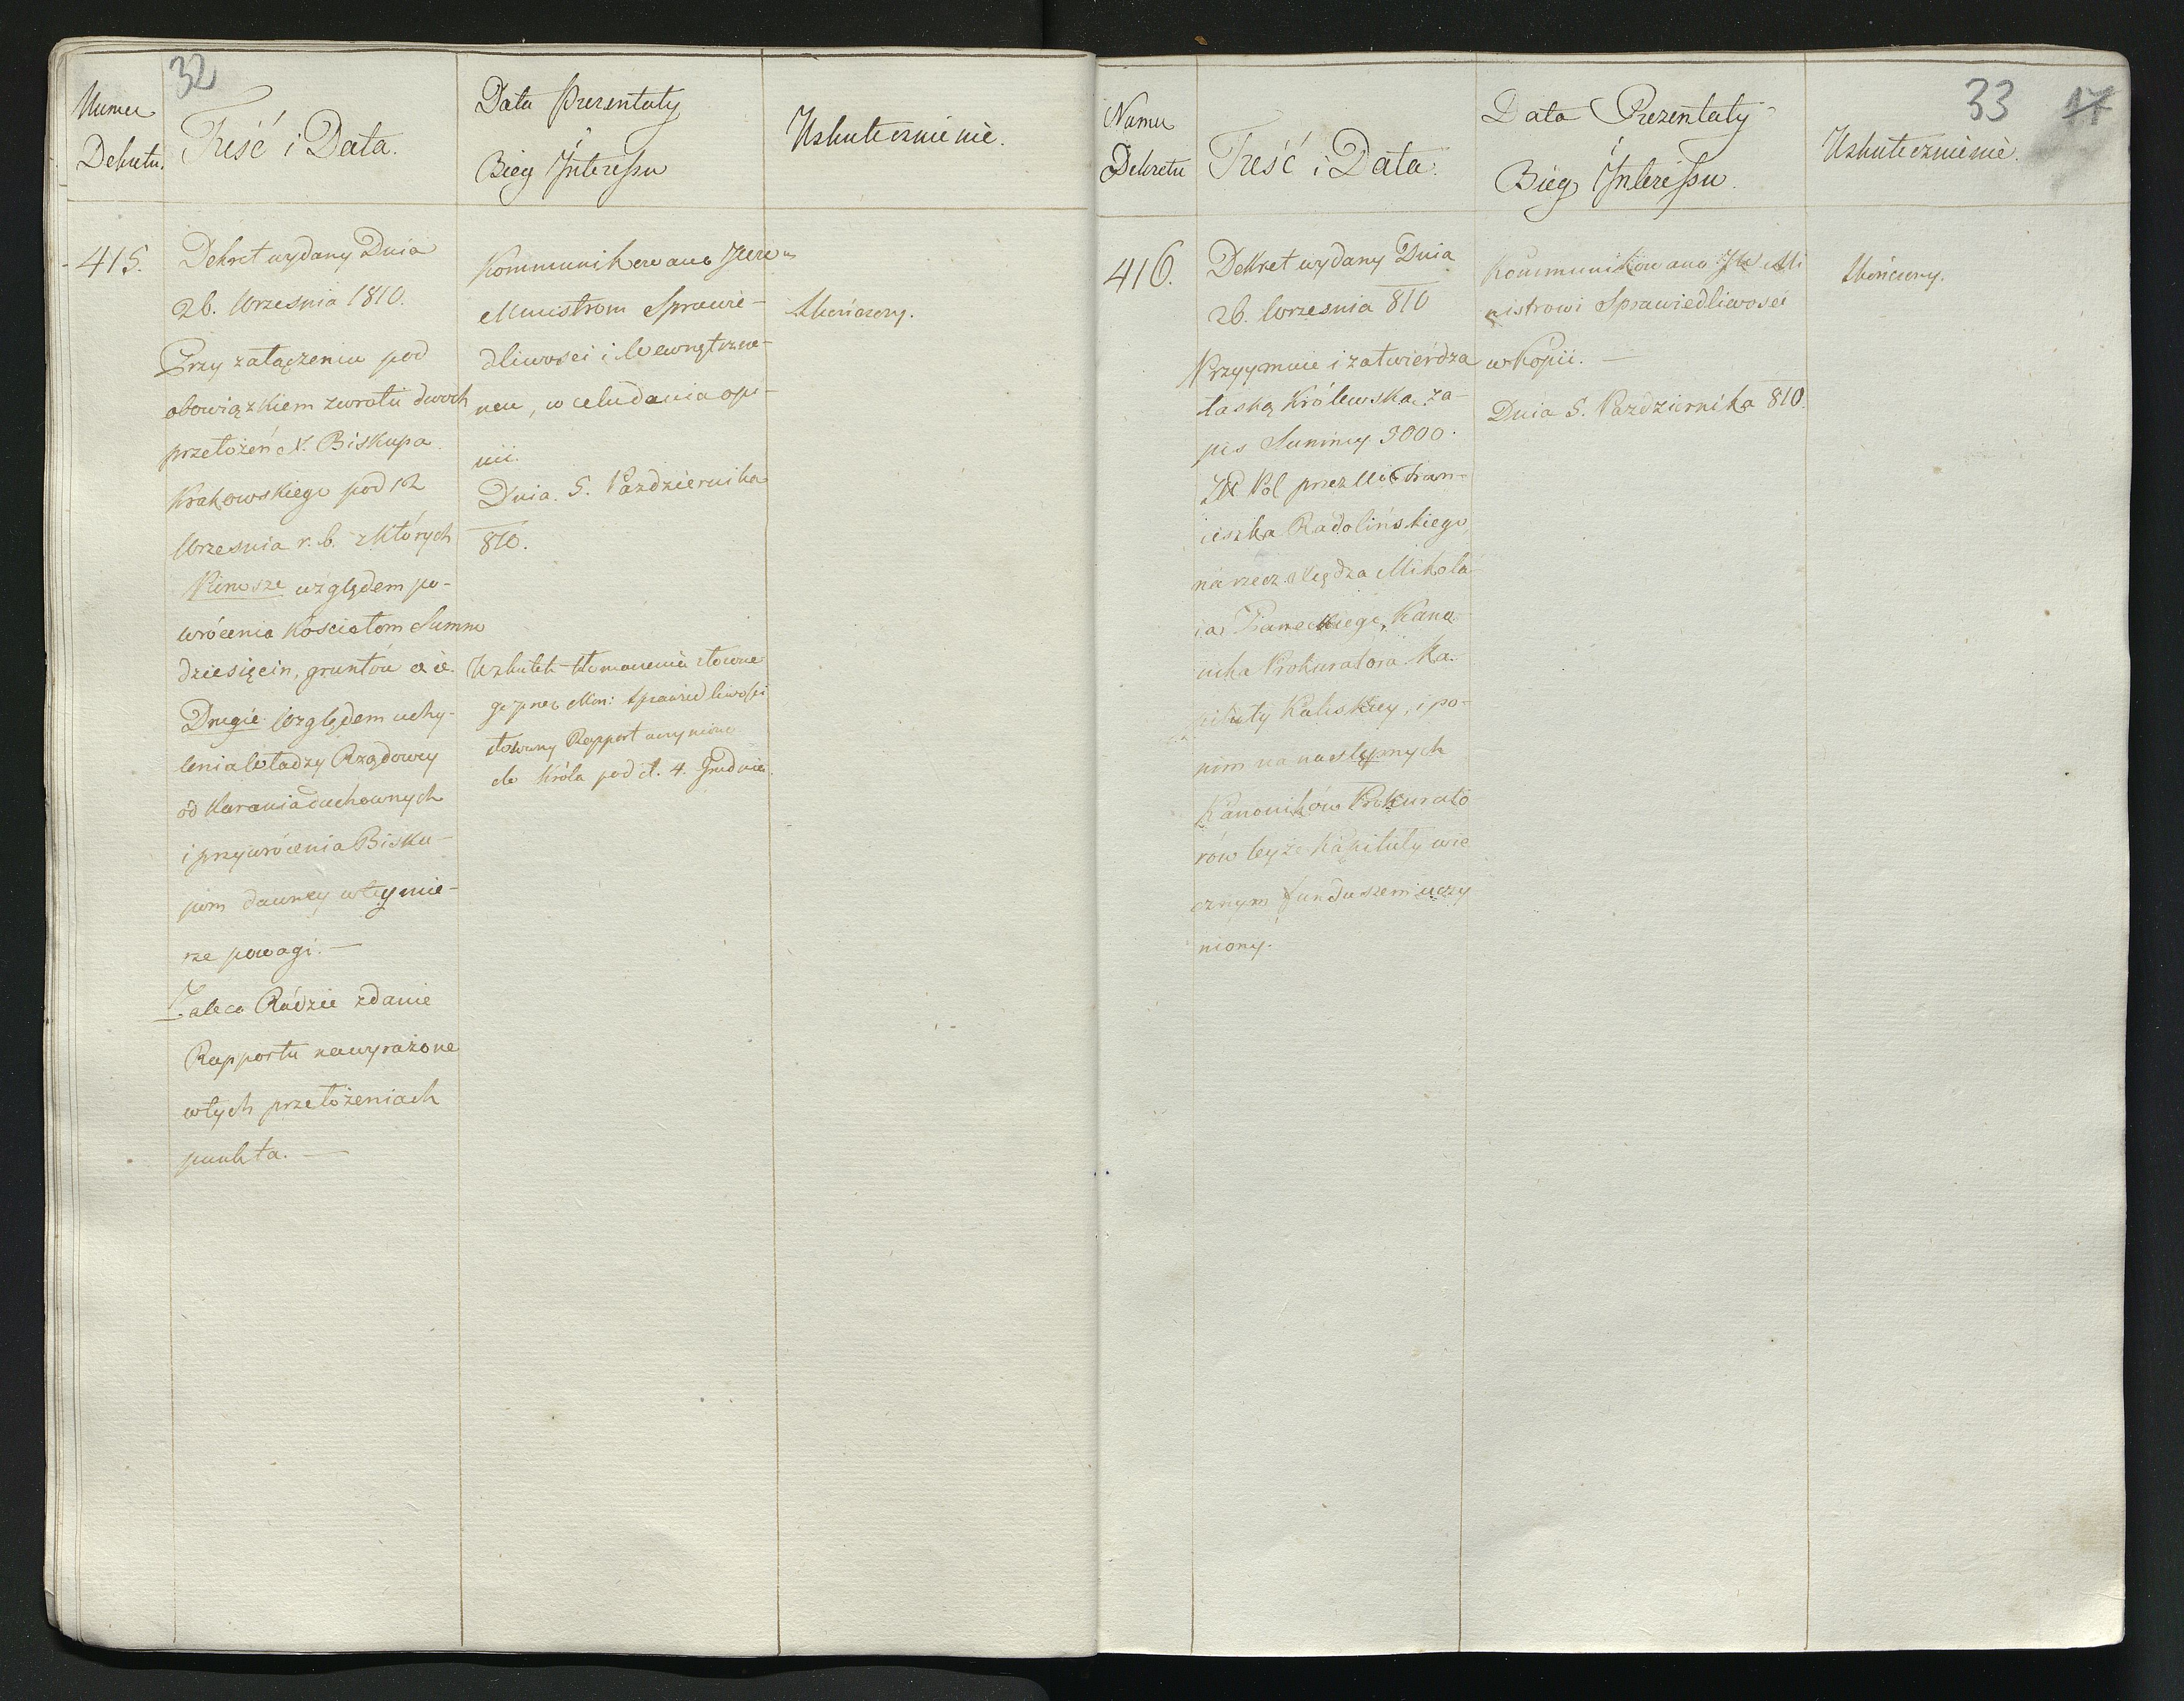 32
Numer
Dekretu.
Treść i Data.
Data Prezentaty
Bieg Interessu
Uskutecznienie.
415.
Dekret wydany Dnia
26. Września 1810.
Przy załączeniu pod
obowiązkiem zwrotu dwoch
przełożeń X. Biskupa
Krakowskiego pod 12
Września r. b. z których
Pierwsze względem po-
wrócenia Kościołom Summ
dziesięcin, gruntów
Drugie względem uchy-
lenia Władzy Rządowey
od Karania duchownych
i przywrócenia Bisku-
pom dawney w tey mie-
rze powagi. —
Zaleca Radzie zdanie
Rapportu na wyrażone
w tych przełożeniach
punkta. —
Kommunikowano
Ministrom Sprawie-
dliwości i Wewnętrzne-
mu, w celu dania opi-
nii.
Dnia 5. Pazdziernika
810.
W skutek tłomaczenia
przez Min: Sprawiedliwości
Rapport uczyniono
do Króla pod d. 4. Grudnia.
Skończony.
33 17
Numer
Dekretu
Treść i Data.
Data Prezentaty
Bieg Interessu.
Uskutecznienie.
416.
Dekret wydany Dnia
26. Września 810
Przyymuie i zatwierdza
łaską Królewską za-
pis Summy 3000.
Zł Pol przez Fran-
ciszka Radolińskiego,
na rzecz Xiędza Mikoła-
ia Kano-
nika Prokuratora Ka-
pituły Kaliskiey, i po
nim na następnych
Kanoników Prokurato
rów teyże Kapituły wie
cznym funduszem uczy
niony.
Kommunikowano JW Mi
nistrowi Sprawiedliwości
w Kopii. —
Dnia 5. Pazdziernika 810.
Skończony.